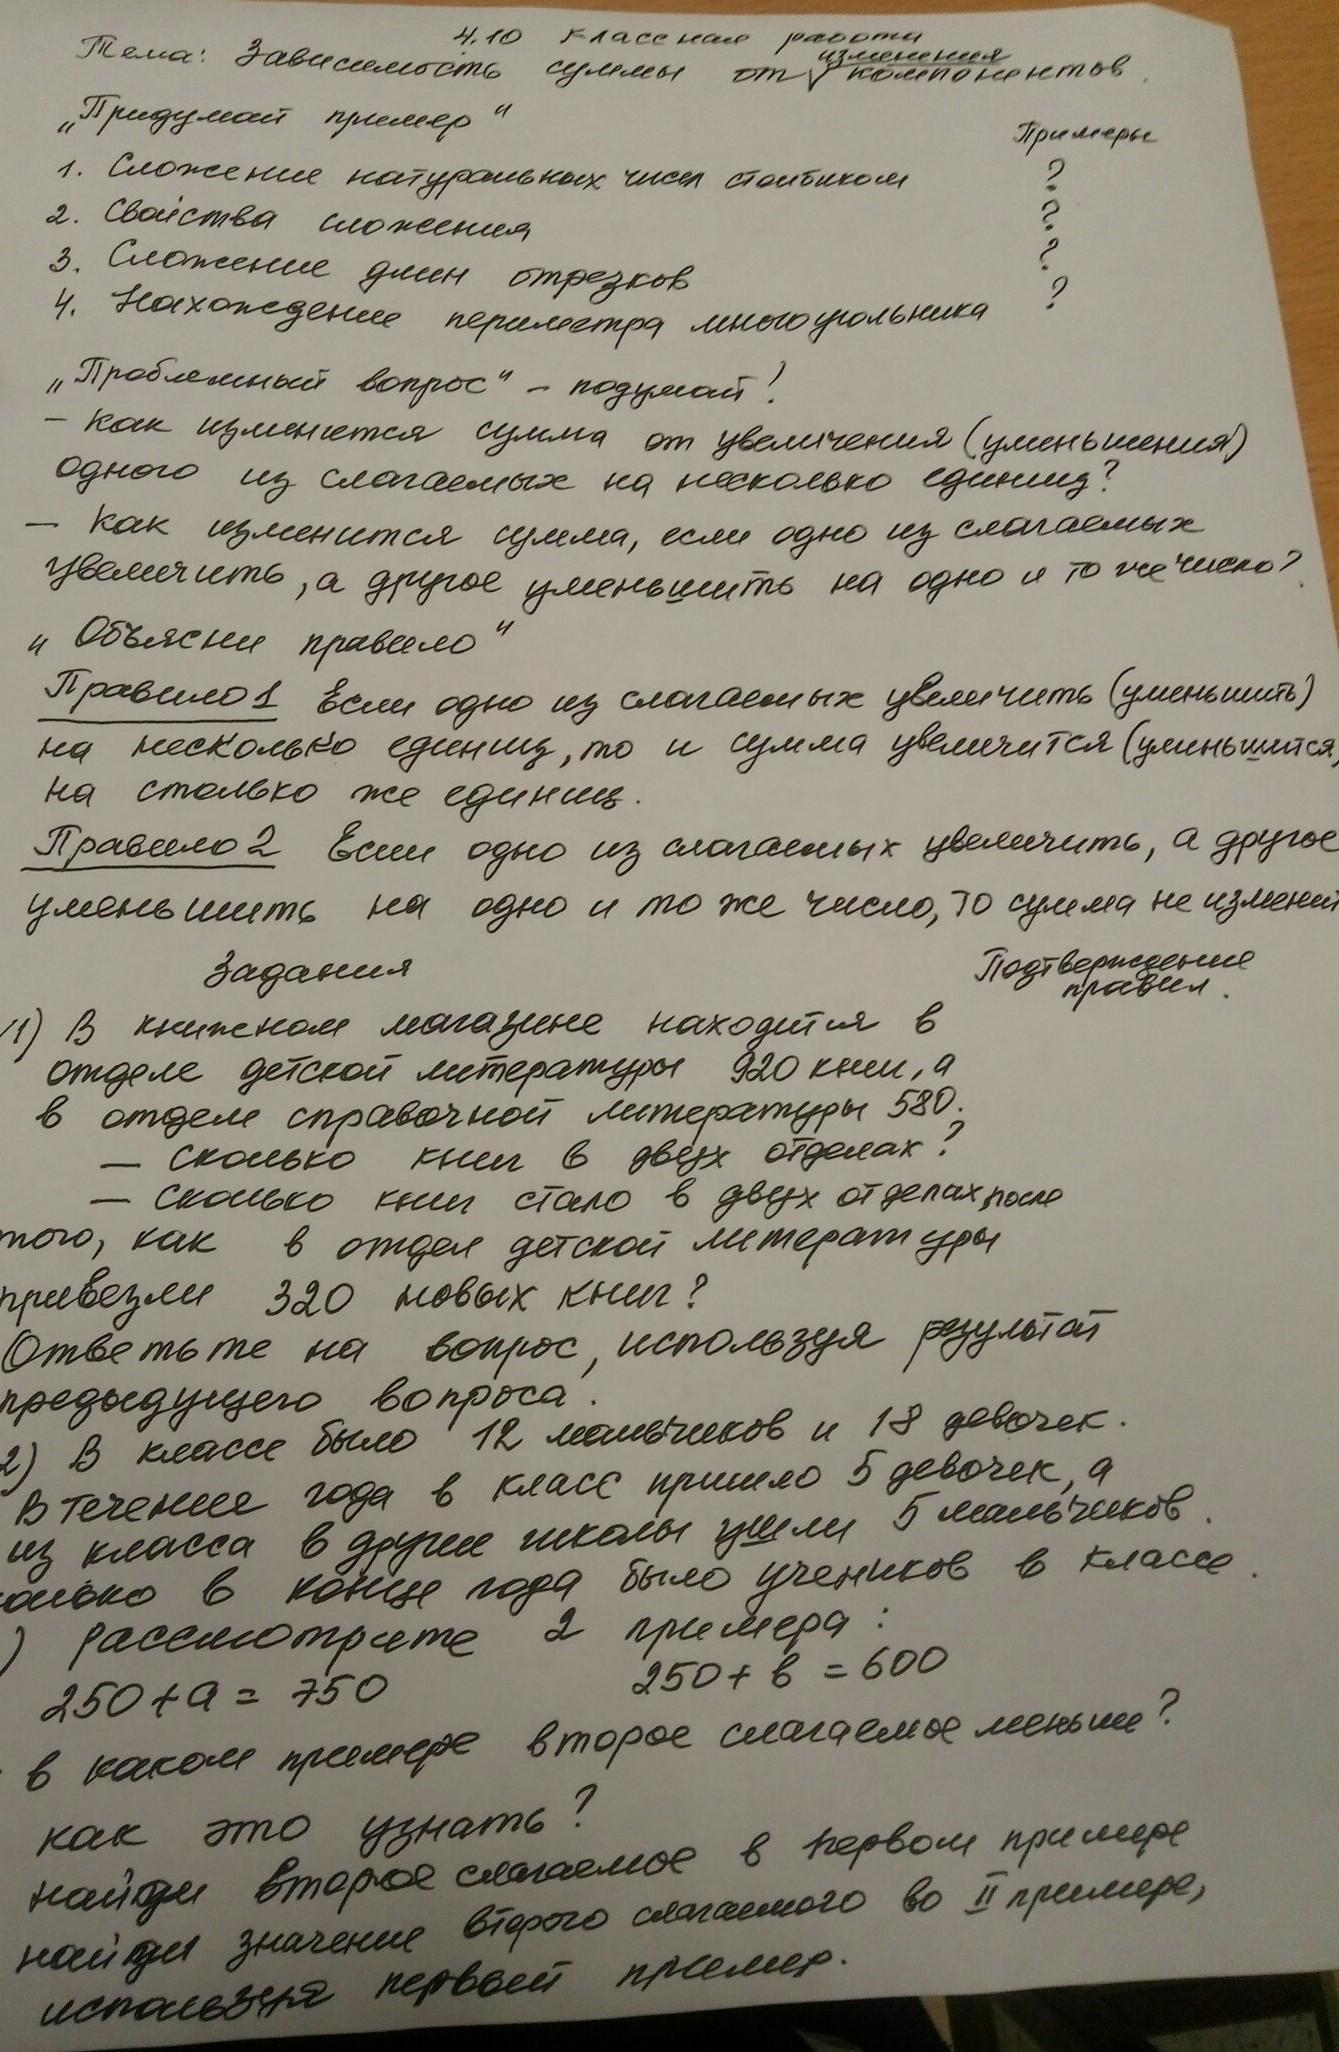 4.10 классная работа
Тема: Зависимость суммы от √ изменения компонентов.
„Придумай пример"
Примеры
1. Сложение натуральных чисел столбиком ?
2. Свойства сложения ?
3. Сложение длин отрезков ?
4. Нахождение периметра многоугольника ?
„Проблемный вопрос" – подумай!
– как изменется сумма от увеличения (уменьшения)
одного из слагаемых на несколько единиц?
– как изменится сумма, если одно из слагаемых
увеличить, а другое уменьшить на одно и то же число?
„Объясни правило"
Правило 1 Если одно из слагаемых увеличить (уменьшить)
на несколько единиц, то и сумма увеличится (уменьшится)
на столько же единиц.
Правило 2 Если одно из слагаемых увеличить, а другое
уменьшить на одно и то же число, то сумма не изменит
Задания
Подтверждение
правил.
1) В книжном магазине находится в
отделе детской литературы 920 книг, а
в отделе справочной литературы 580.
– сколько книг в двух отделах?
– сколько книг стало в двух отделах, после
того, как в отдел детской литературы
привезли 320 новых книг?
Ответьте на вопрос, используя результат
предыдущего вопроса.
2) В классе было 12 мальчиков и 18 девочек.
В течение года в класс пришло 5 девочек, а
из класса в другие школы ушли 5 мальчиков.
колько в конце года было учеников в классе.
) Рассмотрите 2 примера:
250 + а = 750 250 + в = 600
- в каком примере второе слагаемое меньше?
как это узнать?
найди второе слагаемое в первом примере
найди значение второго слагаемого во II примере,
используя первый пример.